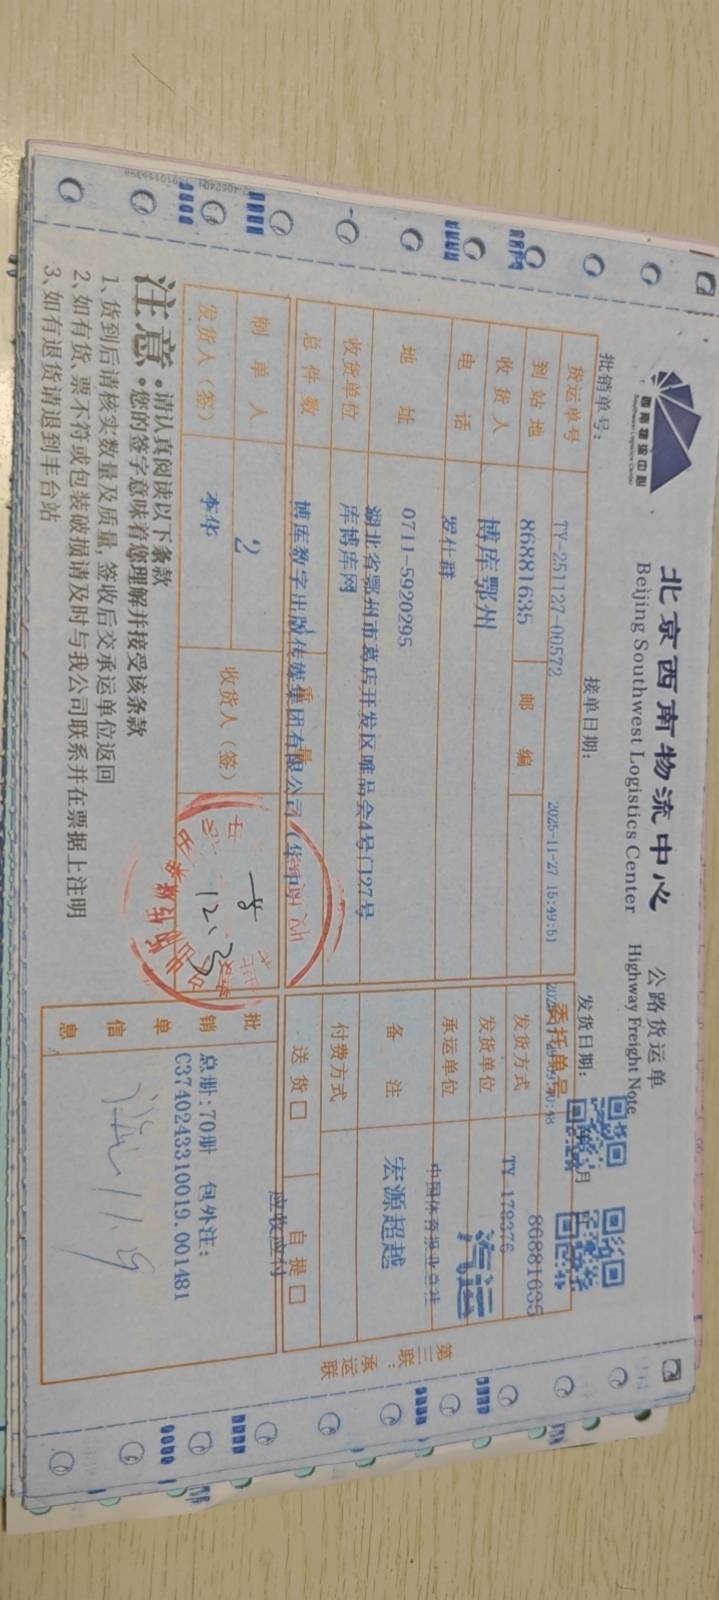 西南物流中心
Southwest Logistics Center
北京西南物流中心 公路货运单
Beijing Southwest Logistics Center Highway Freight Note
批销单号:
接单日期:
发货日期:
月
货运单号 TY-251127-00572 2025-11-27 15:49:51
委托单号 86881635
到站地 86881635 邮编
发货方式 TY-178376
汽运
收货人 博库鄂州
发货单位 中国体育报业总社
电话 罗仕群
承运单位
地址 0711-5920295
备注 宏源超越
收货单位 湖北省鄂州市葛店开发区唯品会4号门27号
库博库网
付费方式
总件数 博库数字出版传媒集团有限公司
重量
送货□ 自提□
应收应付
制单人 2
发货人(签) 本华
收货人(签)
12.3
批销单信息
总册:70册 包外注:
C3740243310019.001481
注意:
·请认真阅读以下条款
·您的签字意味着您理解并接受该条款
1、货到后请核实数量及质量,签收后交承运单位返回
2、如有货、票不符或包装破损请及时与我公司联系并在票据上注明
3、如有退货请退到丰台站
第三联:承运联